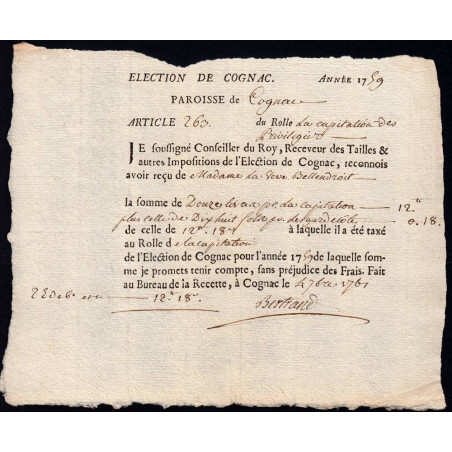 ELECTION DE COGNAC. ANNÉE 1759
PAROISSE de Cognac
ARTICLE 263. du Rolle La capitation des
Privilegiés
JE soussigné Conseiller du Roy, Receveur des Tailles &
autres Impositions de l'Election de Cognac, reconnois
avoir reçu de Madame La veve Bellendroit
la somme de Douze livres pr. La capitation 12"
plus celle de Dix huit sols pr. 0. 18.
de celle de 12" 18s à laquelle il a été taxé
au Rolle de la capitation
de l'Election de Cognac pour l'année 1759 de laquelle som-
me je promets tenir compte, sans préjudice des Frais. Fait
au Bureau de la Recette, à Cognac le 4 7bre 1761
12" 18s
Bertrand